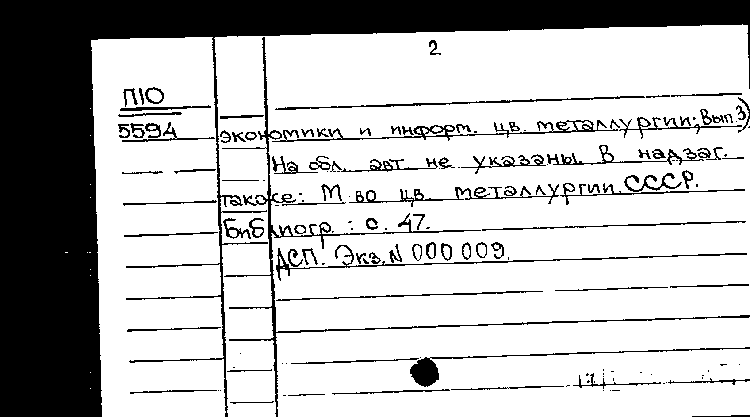 2
П10
5594 экономики и информ. цв. металлургии; Вып. 3)
На обл. авт. не указаны. В надзаг.
также: М во цв. металлургии СССР.
Библиогр.: с. 47.
ДСП. Экз. N 000 009.